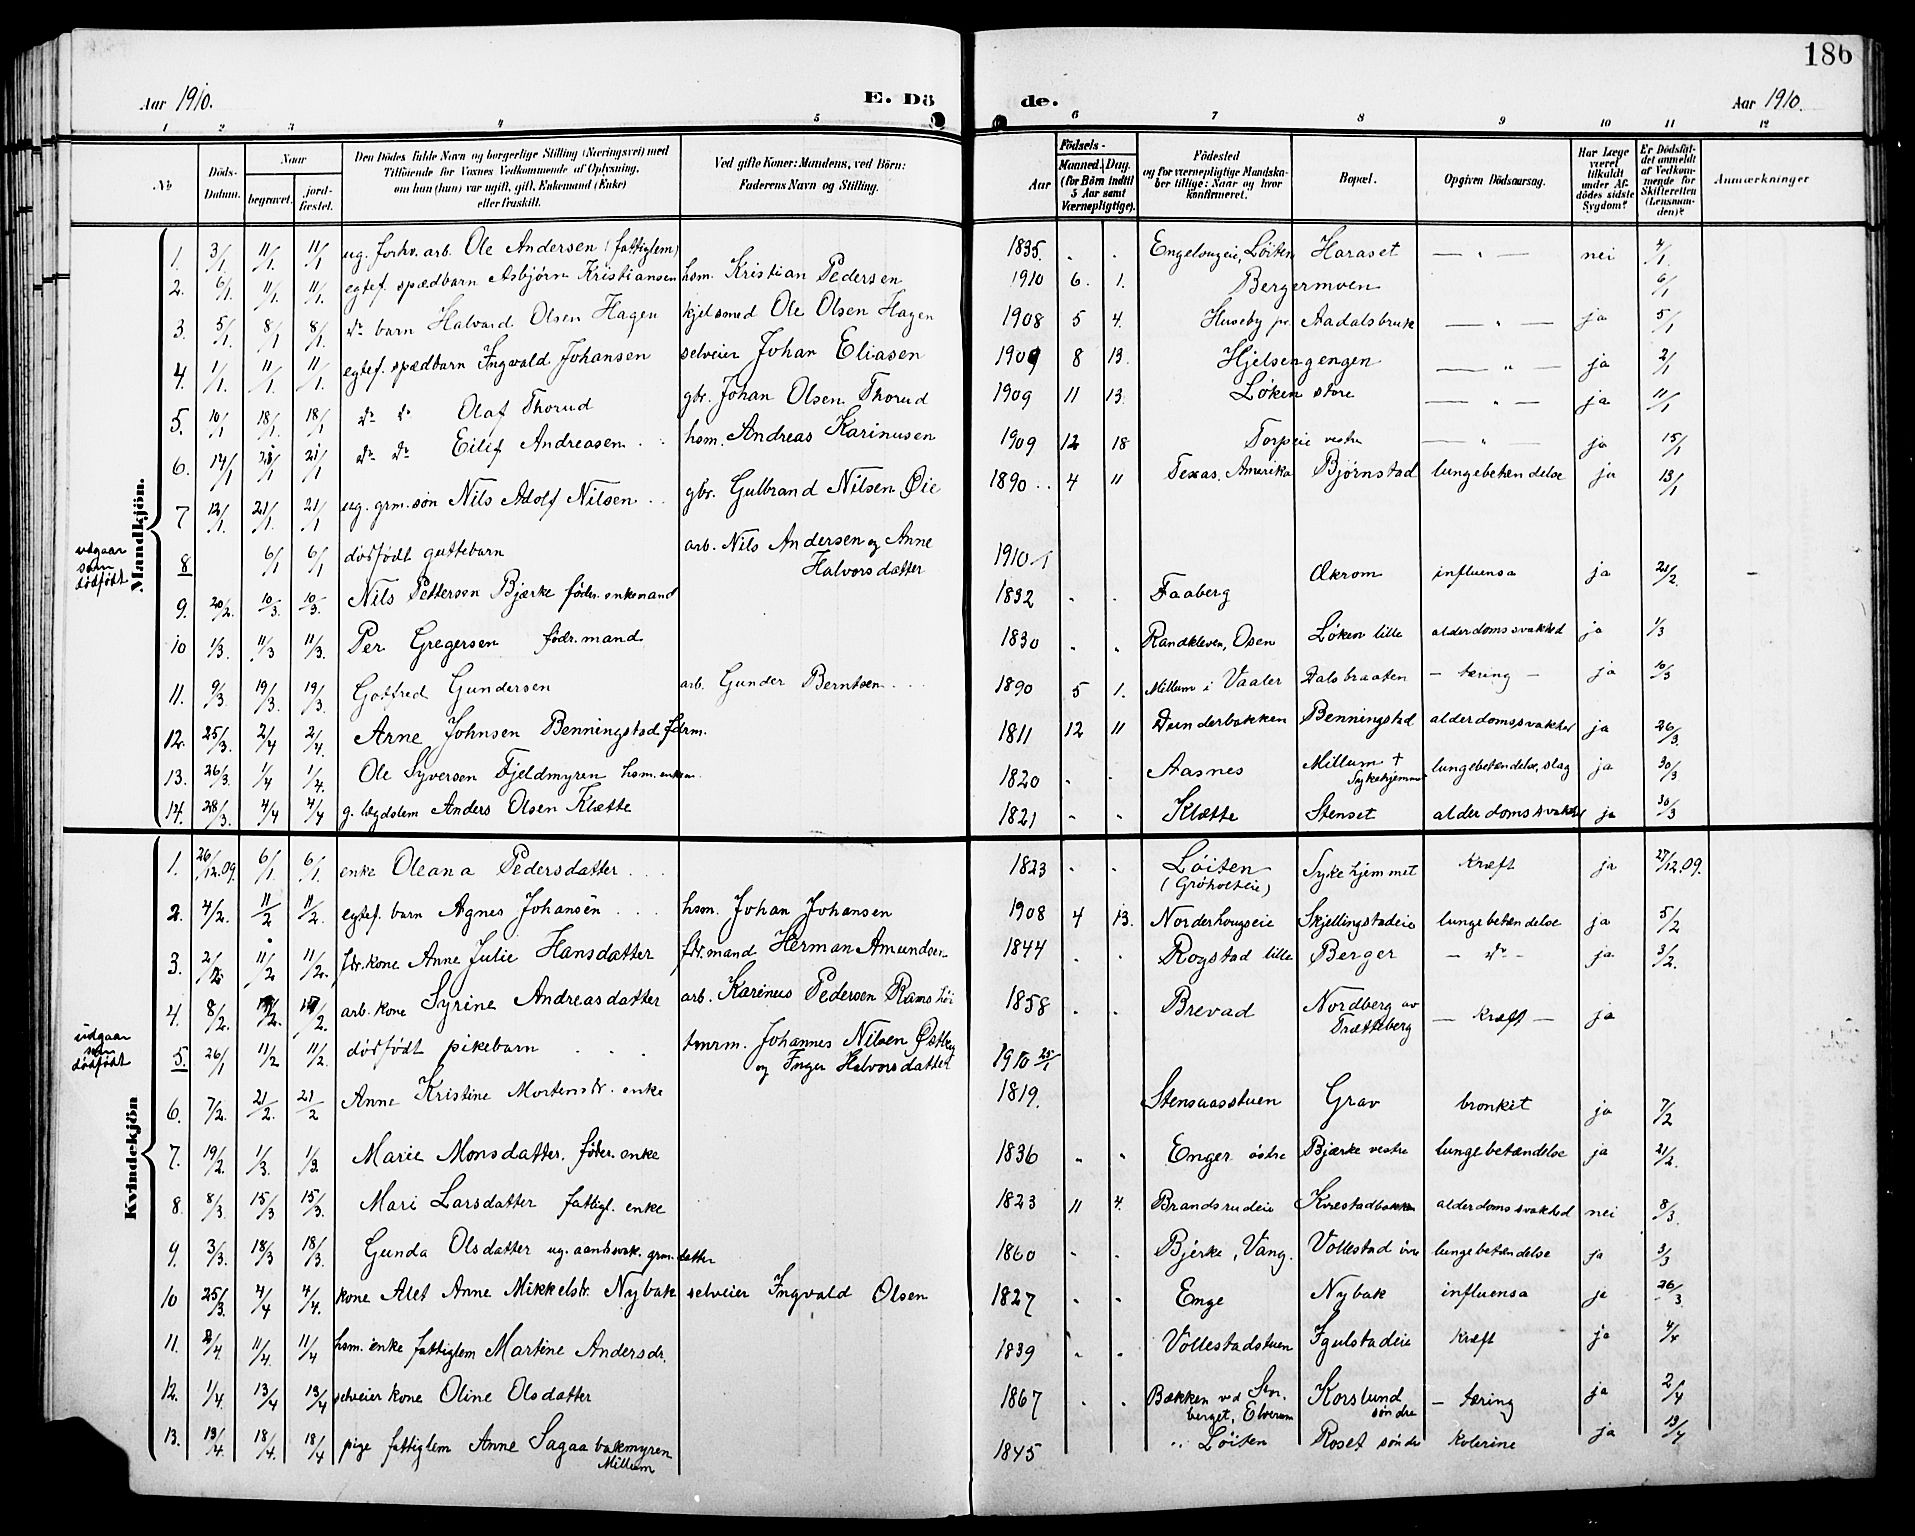 186
Aar 1910. E. Dö de. Aar 1910.
1 2 3 4 5 6 7 8 9 10 11 12
No. Döds-Datum. Naar begravet. jord-fæstet. Den Dödes fulde Navn og borgerlige Stilling (Næringsvei) med Tilföiende for Voxnes Vedkommende af Oplysning, om hun (han) var ugift, gift, Enkemand (Enke) eller fraskilt. Ved gifte Koner: Mandens, ved Börn: Faderens Navn og Stilling. Aar Födsels- Maaned. Dag. (for Börn indtil 5 Aar samt Værnepligtige). Födested og for værnepligtige Mandskaber tillige: Naar og hvor konfirmeret. Bopæl. Opgiven Dödsaarsag. Har Læge været tilkaldt under Afdödes sidste Sygdom? Er Dödsfaldet anmeldt af Vedkommende for Skifteretten (Lensmanden)? Anmærkninger
Mandkjön.
1. 3/1. 11/1. 11/1 ug. forhv. arb. Ole Andersen (fattiglem) 1835. . . Engelaugeie, Löiten Haraset — " — nei 4/1.
2. 6/1. 11/1. 11/1 egtef. spædbarn Asbjørn Kristiansen hsm. Kristian Pedersen 1910 6. 1. Bergermoen 6/1
3. 5/1. 8/1 8/1. do barn Halvard Olsen Hagen kjelsmed Ole Olsen Hagen 1908 5 4. Huseby pr. Aadalsbruk — " — ja 5/1
4. 1/1. 11/1. 11/1. egtef. spædbarn Ingvald Johansen selveier Johan Eliasen 1909 8 13. Hjelsengengen — " — ja 2/1
5. 10/1 18/1. 18/1 do do Olaf Thorud gbr. Johan Olsen Thorud 1909 11 13. Løken store — " — ja 11/1
6. 14/1 21/1 21/1 do do Eilef Andreasen hsm. Andreas Karinusen 1909 12 18 Torpeie vestre — " — ja 15/1
7 12/1. 21/1. 21/1 ug. grm. søn Nils Adolf Nilsen gbr. Gulbrand Nilsen Øie 1890 4 11 Texas, Amerika Bjørnstad lungebetændelse ja 13/1
udgaar som dødfødt 8 6/1 6/1 dødfødt guttebarn arb. Nils Andersen og Anne Halvorsdatter 1910 /1
9. 20/2. 10/3. 10/3. Nils Pettersen Bjærke føder. enkemand 1832 . . Faaberg Ækrom influensa ja 21/2.
10 1/3. 11/3 11/3. Per Gregersen födr. mand 1830 . . Randkleven, Osen Løken lille alderdomssvakhed ja 1/3
11. 9/3 19/3. 19/3. Gotfred Gundersen arb. Gunder Berntsen 1890 5 1. Millum i Vaaler Dalsbraaten — tæring — ja 10/3
12. 25/3. 2/4 2/4. Arne Johnsen Benningstad fdrm. 1811 12 11 Dunderbakken Benningstad alderdomssvakhed ja 26/3.
13. 26/3. 1/4 1/4. Ole Syversen Fjeldmyren hsm. enkem. 1820 . . Aasnes Millum + Sykehjemmet lungebetændelse, slag ja 30/3
14. 28/3. 4/4 4/4 g. lægdslem Anders Olsen Klætte 1821 . . Klætte Stenset alderdomssvakhed ja 30/3
Kvindekjön
1. 26/12.09. 6/1. 6/1. enke Oleana Pedersdatter 1823 . . Løiten (Grøholteie) Sykehjemmet kræft ja 27/12.09.
2. 4/2. 11/2 11/2. egtef. barn Agnes Johansen hsm. Johan Johansen 1908 4 13. Norderhougseie Skjellingstadeie lungebetændelse ja 5/2
3. 2/2 11/2 11/2. fdr. kone Anne Julie Hansdatter fdr. mand Herman Amundsen 1844 . . Rogstad lille Berger — do — ja 3/2.
4. 8/2. 17/2. 17/2. arb. kone Syrine Andreasdatter arb. Karinus Pedersen Ramshöi 1858 . . Brevad Nordberg av Trætteberg — kræft — ja
udgaar som dødfødt 5. 26/1 11/2 11/2. dødfødt pikebarn tmrm. Johannes Nilsen Østby og Inger Halvorsdatter 1910 25/1
6. 7/2. 21/2. 21/2 Anne Kristine Mortensdr. enke 1819. Stensaasstuen Grav bronkit ja 7/2
7. 19/2. 1/3. 1/3. Marie Monsdatter. föder. enke 1836 " " Enger östre Bjærke vestre lungebetændelse ja 21/2.
8. 8/3. 15/3 15/3. Mari Larsdatter fattigl. enke 1823 11 4. Brandsrudeie Kvestadbakken alderdomssvakhed nei 8/3.
9. 3/3. 18/3 18/3. Gunda Olsdatter ug. aandssvak. grm. datter 1860 . . Bjerke, Vang. Vollestad övre lungebetændelse ja 3/3
10 25/3 4/4 4/4. kone Alet Anne Mikkelsdr. Nybak selveier Ingvald Olsen 1827 . . Enge Nybak influensa ja 26/3.
11. 2/4 11/4. 11/4 hsm. enke fattiglem Martine Andersdr. 1839 . . Vollestadstuen Igulstadeie kræft ja 4/4
12. 1/4. 13/4 13/4 selveier kone Oline Olsdatter 1867 . . Bækken ved Storberget, Elverum Korslund søndre — tæring ja 2/4
13. 13/4. 18/4. 18/4 pige fattiglem Anne Sagaabakmyren Millum 1845 " Löiten Roset søndre kolerine ja 13/4